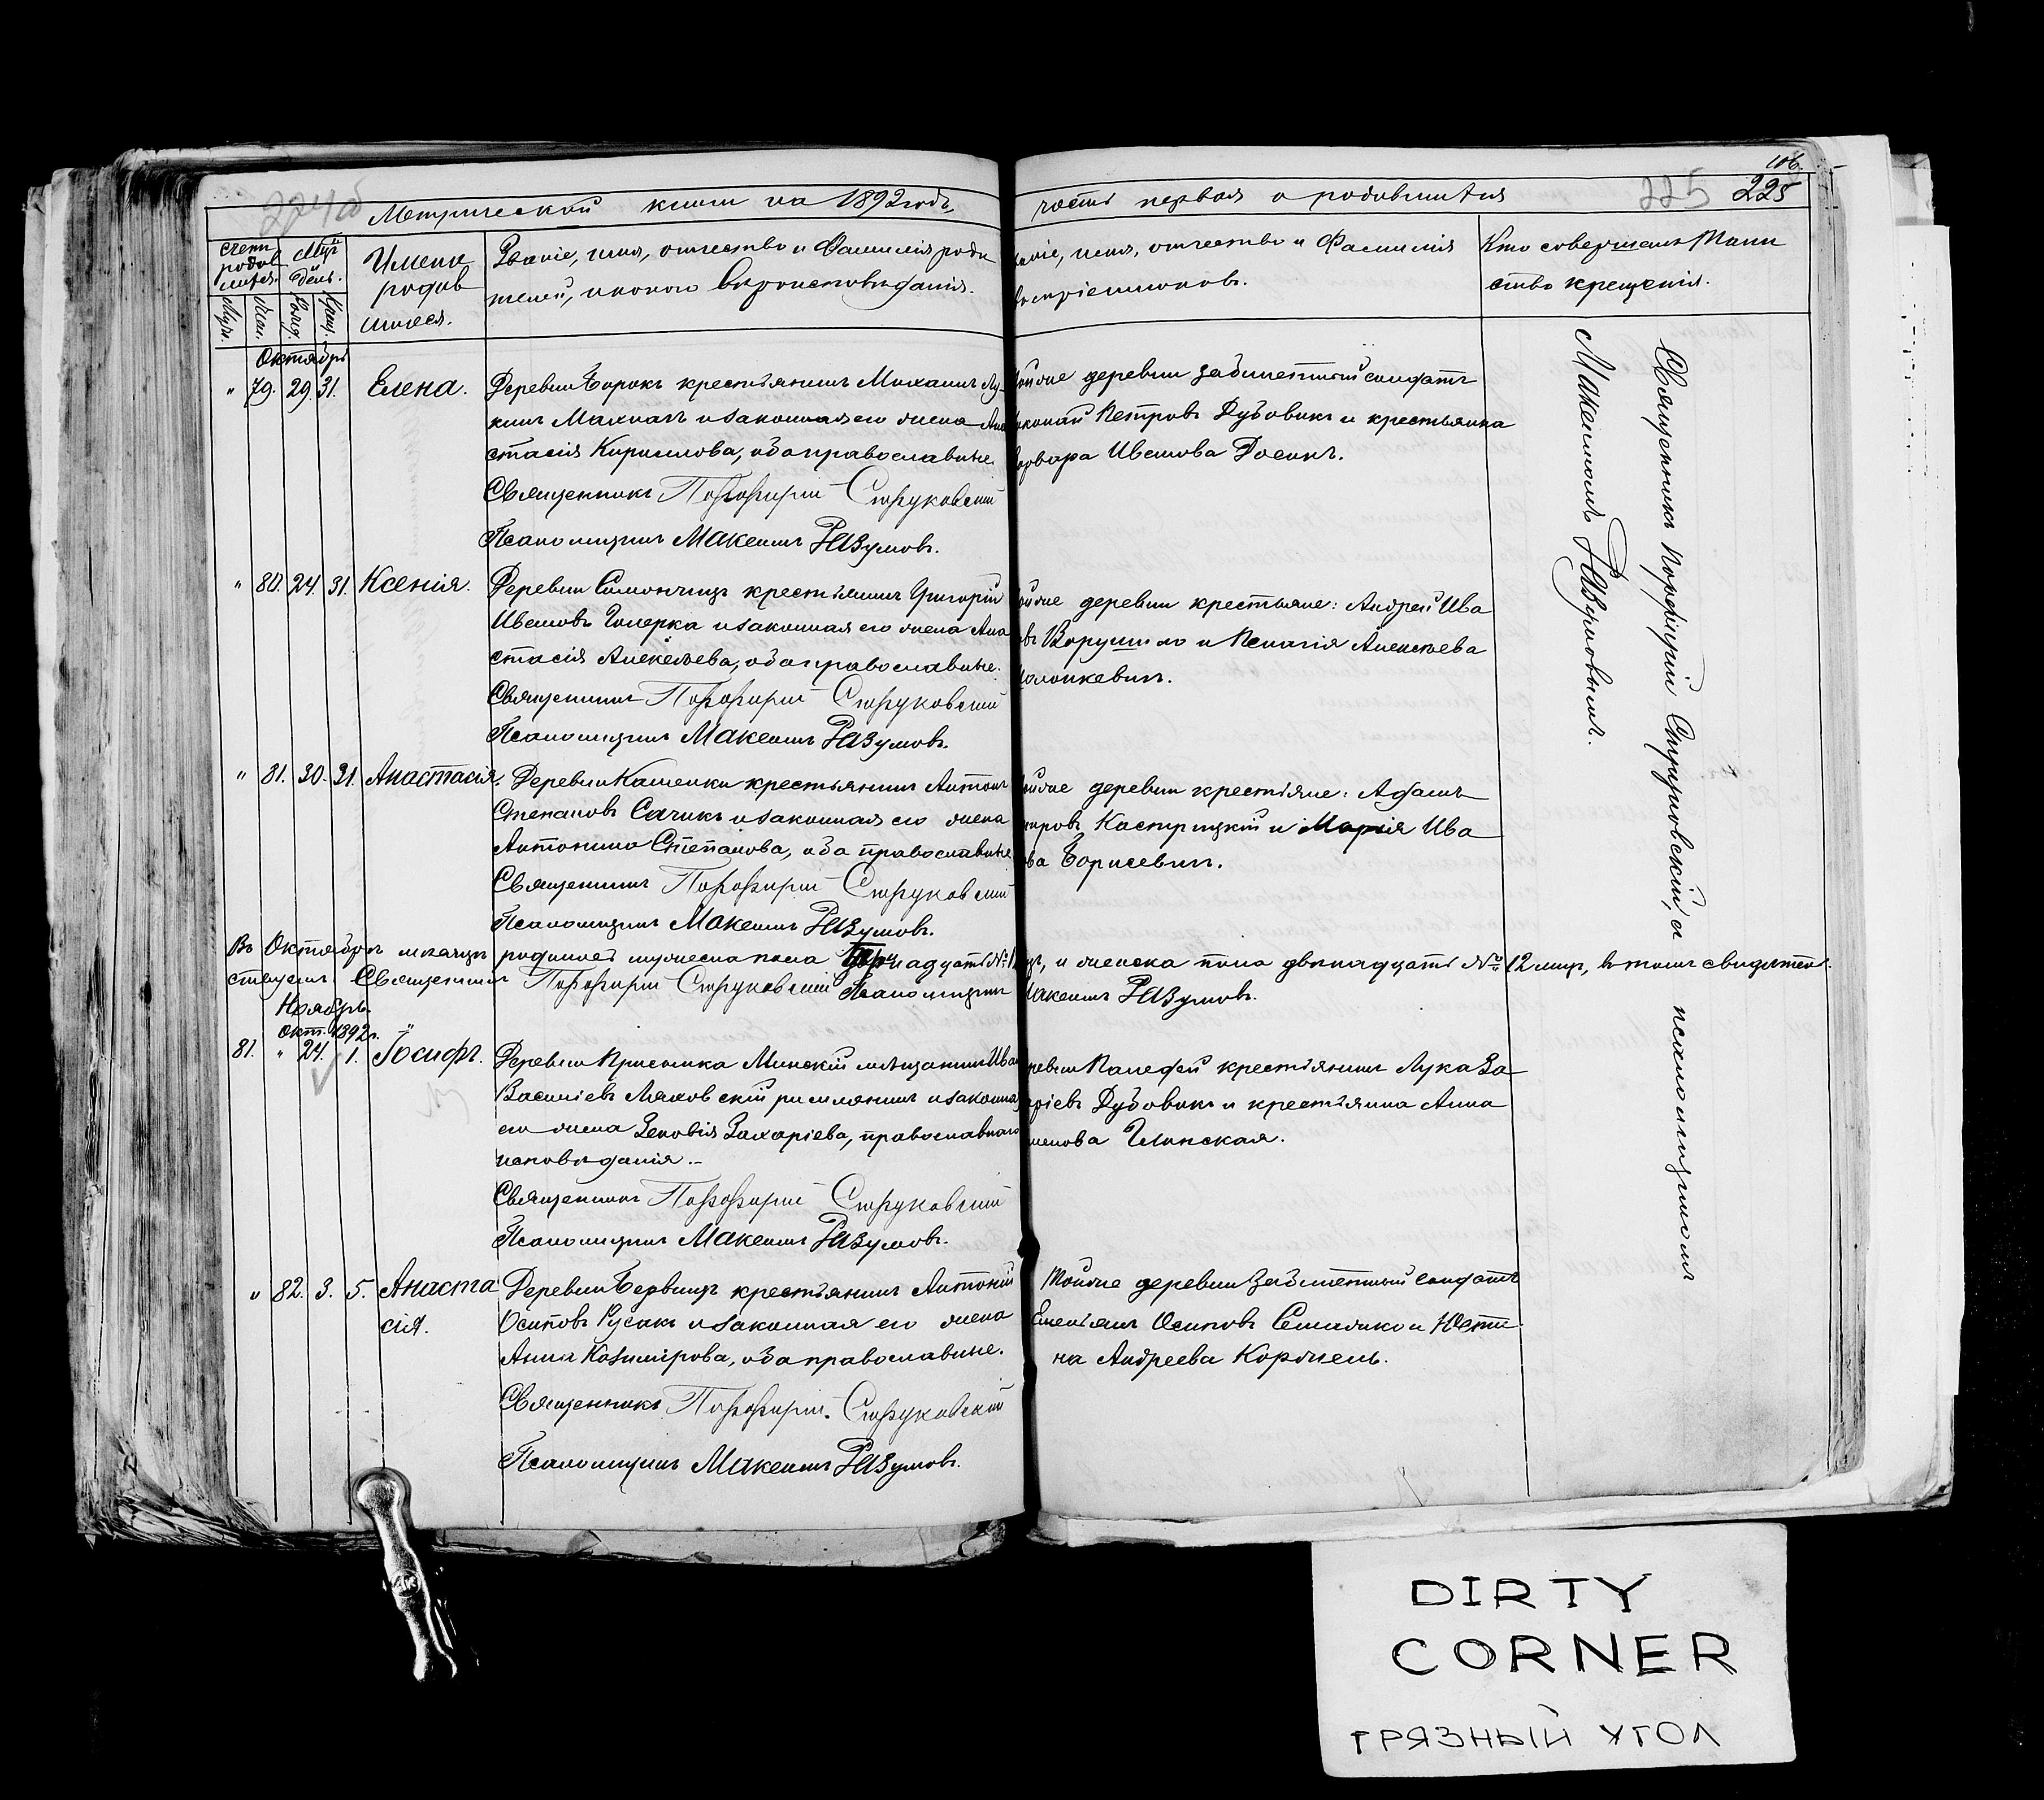 106.
224об
Метрической книги на 1892 годъ,
часть первая о родившихся
225 225
Счетъ родившихся.
Мѣс. День.
Имена родившихся.
Званіе, имя, отчество и Фамилія родителей, и какого вѣроисповѣданія.
Званіе, имя, отчество и Фамилія воспріемниковъ.
Кто совершалъ Таинство крещенія.
Муж. Жен. Рожд. Крещ.
Октябрь
" 79. 29. 31. Елена.
Деревни Борокъ крестьянинъ Михаилъ Лу-
кинъ Махначъ и законная его жена Ана
стасія Кириллова, оба православные.
Священникъ Порфирій Струковскій
Псаломщикъ Максимъ Разумовъ.
деревни забилетный солдатъ
Петровъ Дубовикъ и крестьянка
Варвара Иванова
" 80. 24. 31. Ксенія.
Деревни крестьянинъ Григорій
Ивановъ и законная его жена Ана
стасія Алексѣева, оба православные.
Священникъ Порфирій Струковскій
Псаломщикъ Максимъ Разумовъ.
деревни крестьяне: Андрей Ива
Ворушило и Пелагія Алексѣева
" 81. 30. 31. Анастасія.
Деревни Каменки крестьянинъ Антонъ
Степановъ Сачикъ и законная его жена
Антонина Степанова, оба православные
Священникъ Порфирій Струковскій
Псаломщикъ Максимъ Разумовъ.
деревни крестьяне: Адамъ
Кострицкій и Марія Ива
ва Борисевичъ.
Въ Октябрѣ мѣсяцѣ родилось мужеска пола и женска пола двѣнадцать № 12 мир, въ томъ свидѣтель
ствуемъ Священникъ Порфирій Струковскій Псаломщикъ Максимъ Разумовъ.
Ноябрь.
Окт. 1892 г.
81. " 24. 1. Іосифъ.
Деревни Минскій мѣщанинъ Иван
Васильевъ Маковскій римлянинъ и законная
его жена Зеновія Захаріева, православнаго
исповѣданія.
Священникъ Порфирій Струковскій
Псаломщикъ Максимъ Разумовъ.
крестьянинъ Лука За
харіевъ Дубовикъ и крестьянка Анна
" 82. 3. 5. Анаста
сія.
Деревни крестьянинъ Антоній
Осиповъ Русакъ и законная его жена
Анна Казимірова, оба православные.
Священникъ Порфирій Струковскій
Псаломщикъ Максимъ Разумовъ.
Тойже деревни забилетный солдатъ
Емеліянъ Осиповъ и Юсти
на Андреева
Священникъ Порфирій Струковскій, а псаломщикомъ
Максимомъ Разумовымъ.
DIRTY
CORNER
ГРЯЗНЫЙ УГОЛ